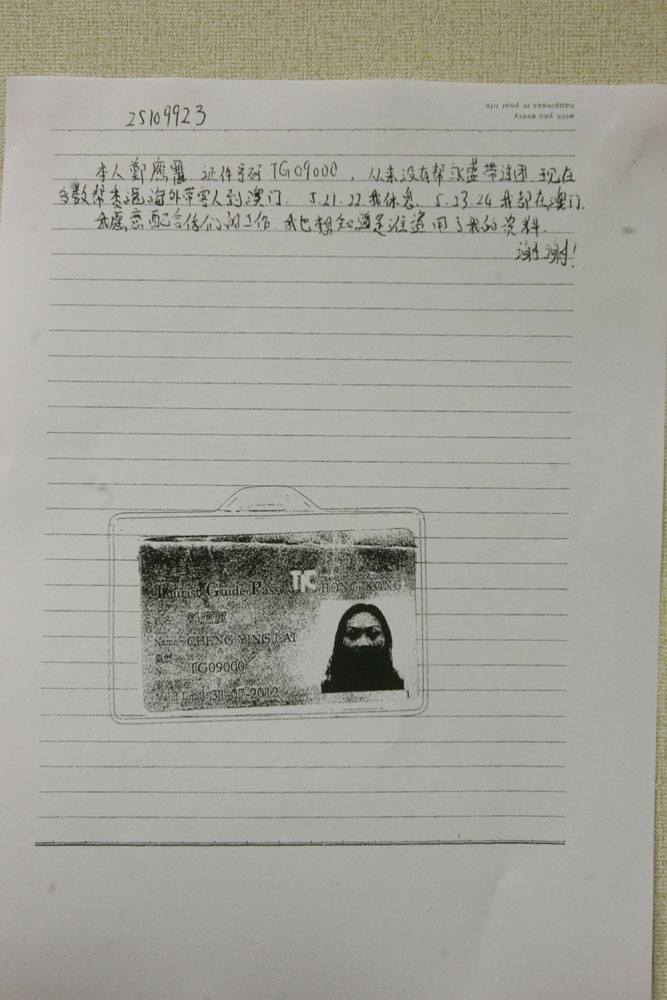 25109923
wish you every
happiness in your life
本人鄭應 证件号码 TG09000，从来没有帮永盛带过团 现在
多数帮 海外带客人到澳门. 5.21.22 我休息. 5.23.24 我都在澳门.
我愿意配合你们的工作. 我也想知道是谁盗用了我的资料.
谢谢!
TIC
Tourist Guide Pass HONG KONG
Name CHENG YING LAI
No. TG09000
Valid Until 31-07-2012
1